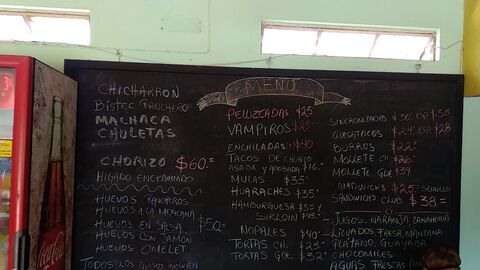 MENÚ
CHICHARRON
BISTEC RANCHERO
MACHACA
CHULETAS
CHORIZO $60.=
HIGADO ENCEBOLLADO
HUEVOS RANCHEROS
HUEVOS A LA MEXICANA
HUEVOS EN SALSA $50.=
HUEVOS CON JAMÓN
HUEVOS OMELET
TODOS LOS GUISOS INCLUYEN
PELLIZCADAS $25
VAMPIROS $25
ENCHILADAS $40
TACOS DE CHORIZO
ASADA Y ADOBADA $16.-
MULAS $35
HUARACHES $35
HAMBURGUESA $35 Y
SIRLOIN $45.-
NOPALES $40
TORTAS CH. $25
TORTAS GDE $32
SINCRONIZADAS $30 ESP. $35
QUESATACOS $24 ESP $28
BURROS $22
MOLLETE CH $26
MOLLETE GDE $34
SANDWICHS $25 SENCILLO
SANDWICHS CLUB $38=
JUGOS: NARANJA, ZANAHORIA
LICUADOS FRESA, MANZANA
PLATANO, GUAYABA
CHOCOMILES
AGUAS FRESCAS
Coca-Cola